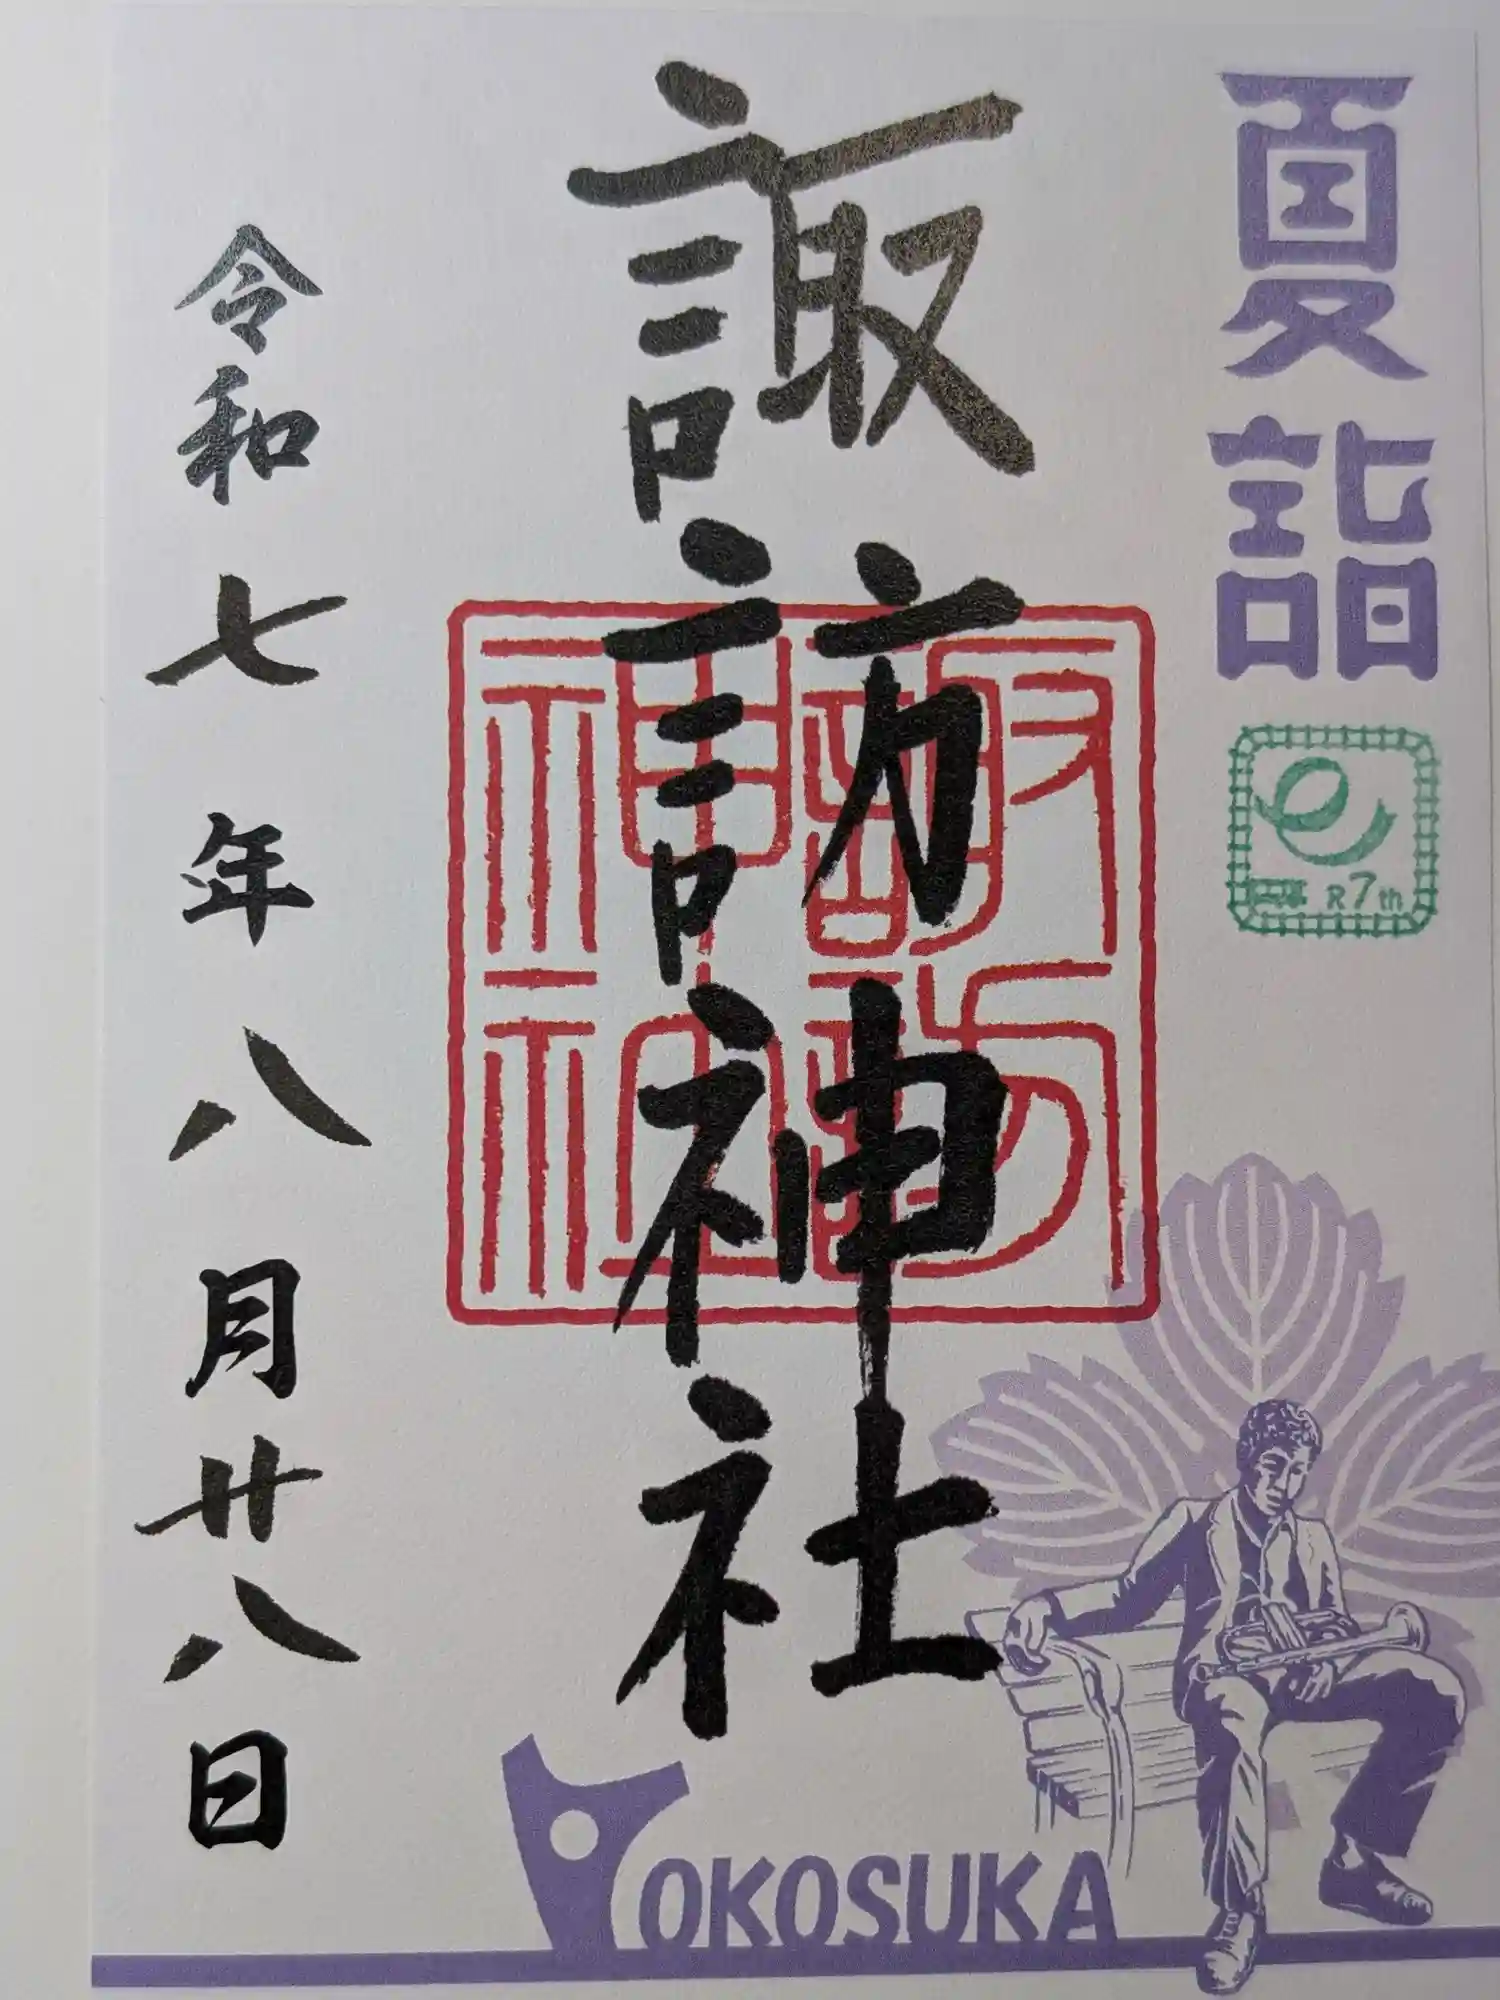 夏詣
R7th
諏訪神社
諏訪神社
令和七年八月廿八日
YOKOSUKA